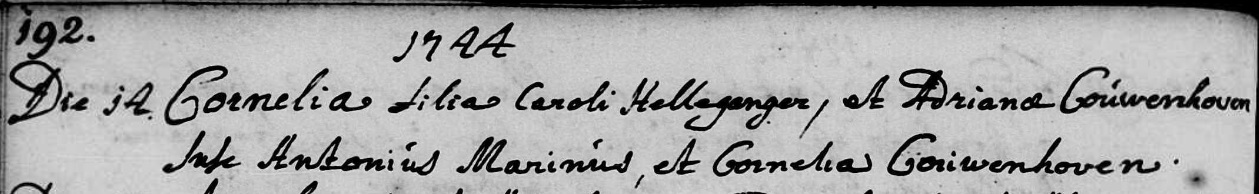 192.
1744
Die 14 Cornelia filia Caroli Hellegenger, et Adrianæ Couwenhoven
Susc Antonius Marinus, et Cornelia Couwenhoven.